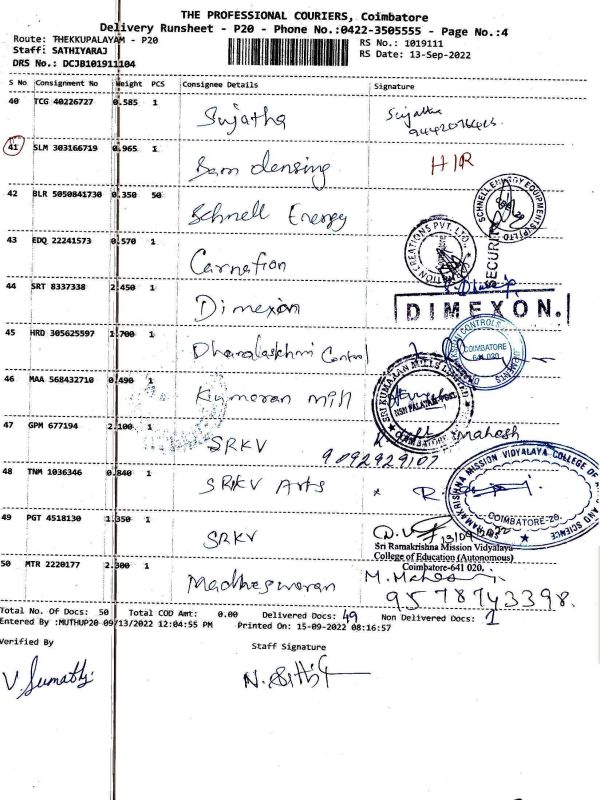 THE PROFESSIONAL COURIERS, Coimbatore
Delivery Runsheet - P20 - Phone No.:0422-3505555 - Page No.:4
Route: THEKKUPALAYAM - P20
RS No.: 1019111
Staff: SATHIYARAJ
RS Date: 13-Sep-2022
DRS No.: DCJB101911104
S No Consignment No Weight PCS Consignee Details Signature
40 TCG 40226727 0.585 1 Sujatha Sujatha
41 SLM 303166719 0.965 1 HIR
42 BLR 5050841730 0.350 50 Schnell Energy
SCHNELL ENERGY EQUIPMENTS (P) LTD
SECURITY
43 EDQ 22241573 0.570 1 Carnation
CREATIONS PVT. LTD.
44 SRT 8337338 2.450 1 Dimexon
DIMEXON.
45 HRD 305625597 1.700 1 Dhanalakshmi Control
CONTROLS
COIMBATORE
641 020
46 MAA 568432710 0.490 1 Kumaran mill
SRI KUMARAN MILLS LIMITED
NSN PALAYAM POST.
47 GPM 677194 2.100 1 SRKV Mahesh
9092929107
48 TNM 1036346 0.840 1 SRKV Arts
RAMAKRISHNA MISSION VIDYALAYA COLLEGE OF ARTS AND SCIENCE
COIMBATORE-20.
49 PGT 4518130 1.350 1 SRKV
Sri Ramakrishna Mission Vidyalaya
College of Education (Autonomous)
Coimbatore-641 020.
50 MTR 2220177 2.300 1 Madheswaran
9578743398.
Total No. Of Docs: 50 Total COD Amt: 0.00 Delivered Docs: 49 Non Delivered Docs: 1
Entered By :MUTHUP20-09/13/2022 12:04:55 PM Printed On: 15-09-2022 08:16:57
Verified By
Staff Signature
V. Sumathi